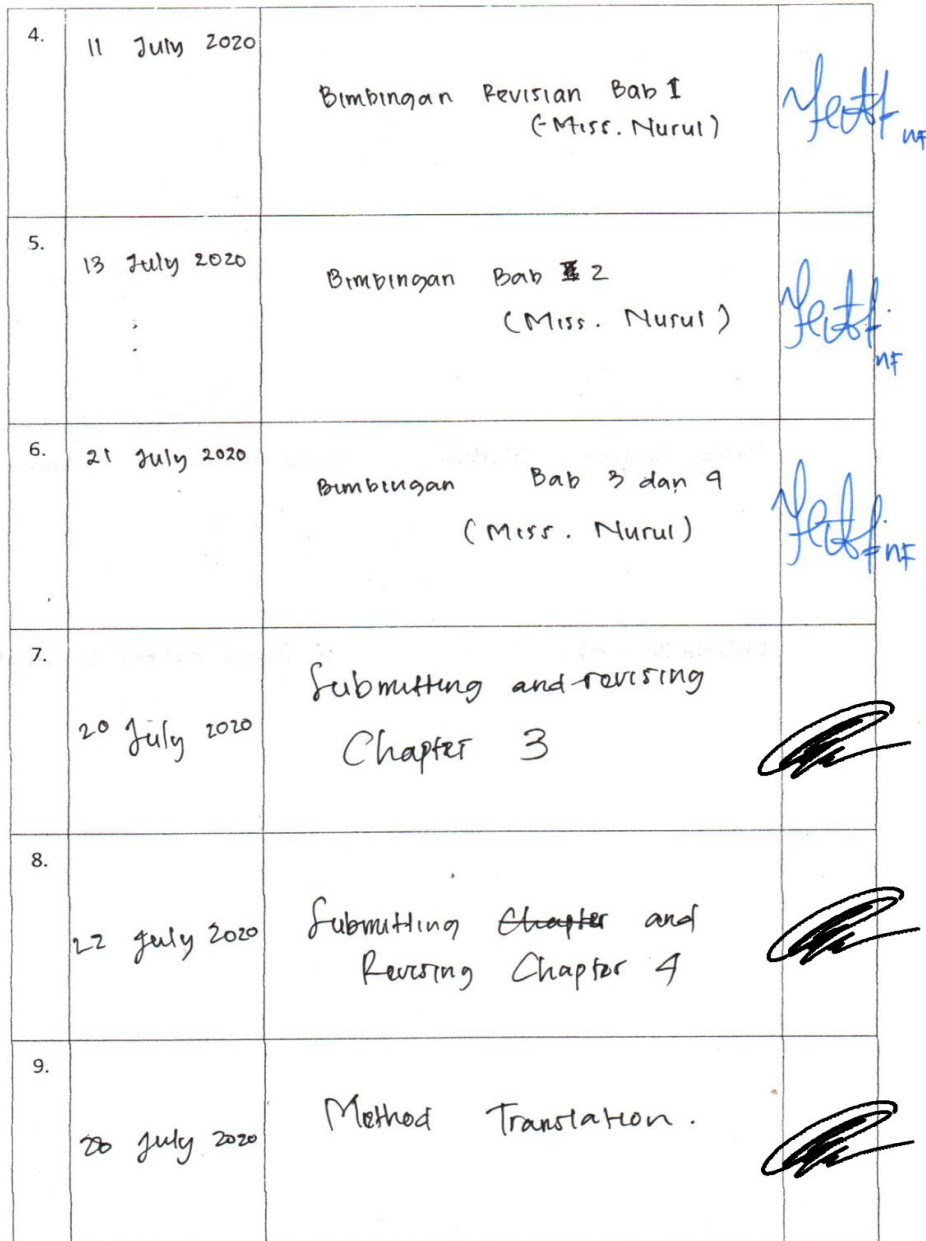 4.
11 July 2020
Bimbingan Revisian Bab 1
(-Miss. Nurul)
nF
5.
13 July 2020
Bimbingan Bab 2
(Miss. Nurul)
nF
6.
21 July 2020
Bimbingan Bab 3 dan 4
(Miss. Nurul)
nF
7.
20 July 2020
Submitting and revising
Chapter 3
8.
22 July 2020
Submitting Chapter and
Revising Chapter 4
9.
July 2020
Method Translation.